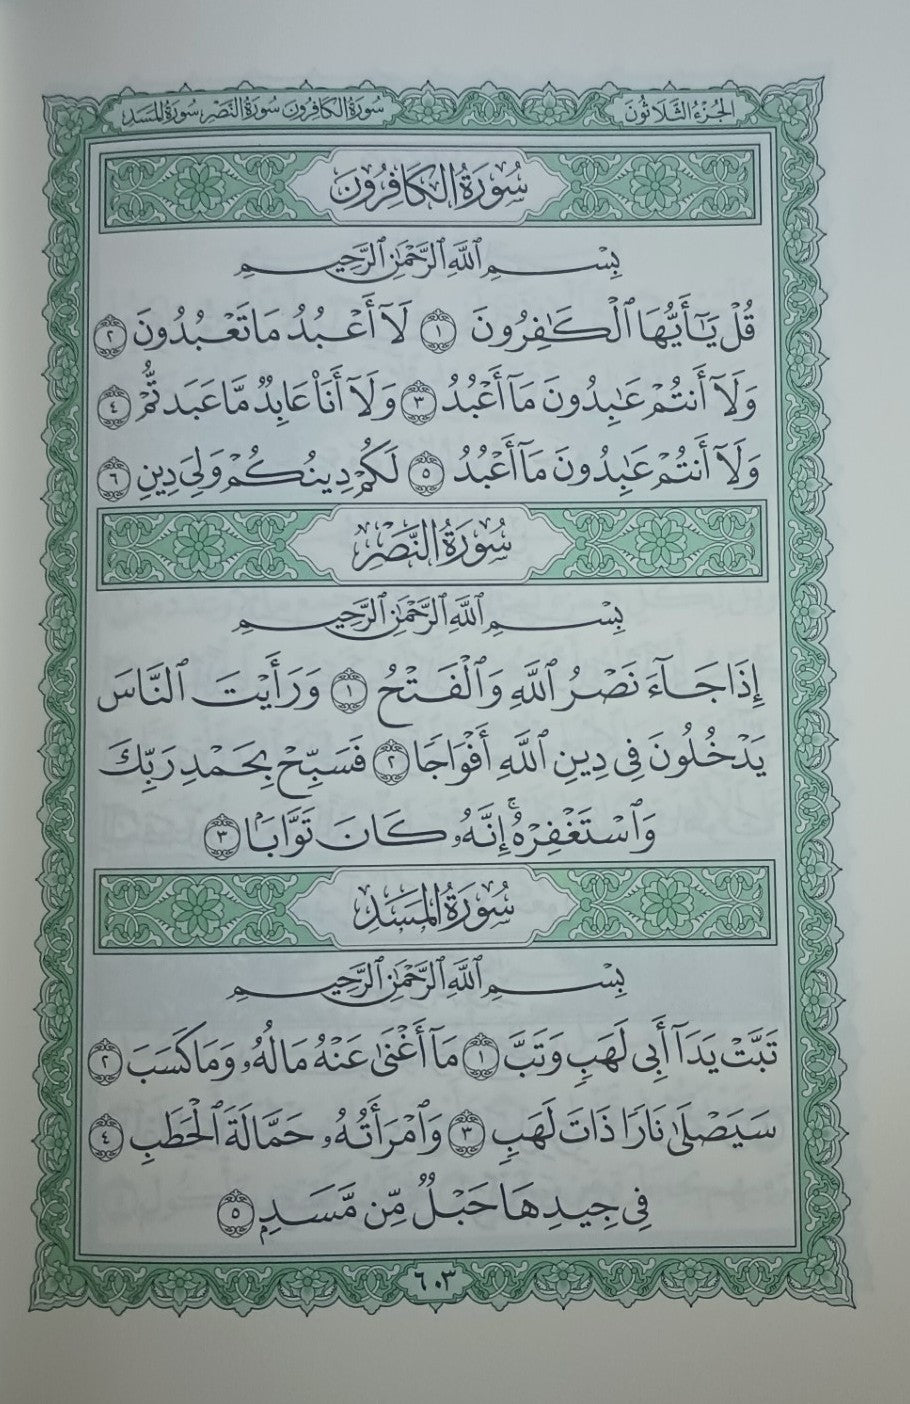 الجزء الثلاثون
سورة الكافرون سورة النصر سورة المسد
سُورَةُ الكَافِرُونَ
بِسْمِ ٱللَّهِ ٱلرَّحْمَٰنِ ٱلرَّحِيمِ
قُلْ يَٰٓأَيُّهَا ٱلْكَٰفِرُونَ ١ لَآ أَعْبُدُ مَا تَعْبُدُونَ ٢
وَلَآ أَنتُمْ عَٰبِدُونَ مَآ أَعْبُدُ ٣ وَلَآ أَنَا۠ عَابِدٌ مَّا عَبَدتُّمْ ٤
وَلَآ أَنتُمْ عَٰبِدُونَ مَآ أَعْبُدُ ٥ لَكُمْ دِينُكُمْ وَلِيَ دِينِ ٦
سُورَةُ النَّصْرِ
بِسْمِ ٱللَّهِ ٱلرَّحْمَٰنِ ٱلرَّحِيمِ
إِذَا جَآءَ نَصْرُ ٱللَّهِ وَٱلْفَتْحُ ١ وَرَأَيْتَ ٱلنَّاسَ
يَدْخُلُونَ فِى دِينِ ٱللَّهِ أَفْوَاجًا ٢ فَسَبِّحْ بِحَمْدِ رَبِّكَ
وَٱسْتَغْفِرْهُ ۚ إِنَّهُۥ كَانَ تَوَّابًۢا ٣
سُورَةُ المَسَدِ
بِسْمِ ٱللَّهِ ٱلرَّحْمَٰنِ ٱلرَّحِيمِ
تَبَّتْ يَدَآ أَبِى لَهَبٍ وَتَبَّ ١ مَآ أَغْنَىٰ عَنْهُ مَالُهُۥ وَمَا كَسَبَ ٢
سَيَصْلَىٰ نَارًا ذَاتَ لَهَبٍ ٣ وَٱمْرَأَتُهُۥ حَمَّالَةَ ٱلْحَطَبِ ٤
فِى جِيدِهَا حَبْلٌ مِّن مَّسَدٍۭ ٥
٦٠٣